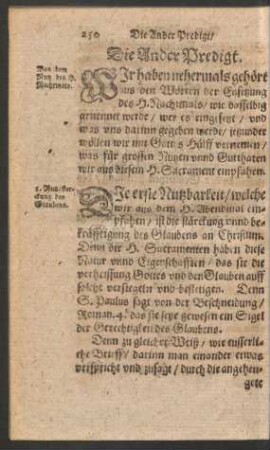 250 Die Ander Predigt/
Die Ander Predigt.
Von dem
Nutz des H.
Nachtmals.
WJr haben nehermals gehört
aus den Worten der Einsetzung
des H. Nachtmals / wie dasselbig
genennet werde / wer es eingesetzt / und
was uns darinn gegeben werde / jetzunder
wöllen wir mit Gottes Hülff vernemen /
was für grossen Nutzen unnd Gutthaten
wir aus diesem H. Sacrament empfahen.
1. Nutz/Ster-
ckung des
Glaubens.
DJe erste Nutzbarkeit / welche
wir aus dem H. Abendmal em-
pfahen / ist die stärckung unnd be-
kräfftigung des Glaubens an Christum.
Denn die H. Sacramenten haben diese
Natur unnd Eigenschafften / das sie die
verheissung Gottes und den Glauben auff
solche versiegeln und bestetigen. Denn
S. Paulus sagt von der Beschneidung /
Roman. 4. das sie seye gewesen ein Sigel
der Gerechtigkeit des Glaubens.
Denn zu gleicher Weiß / wie eusserli-
che Brieff / darinn man einander etwas
verspricht und zusagt / durch die angehen-
gete